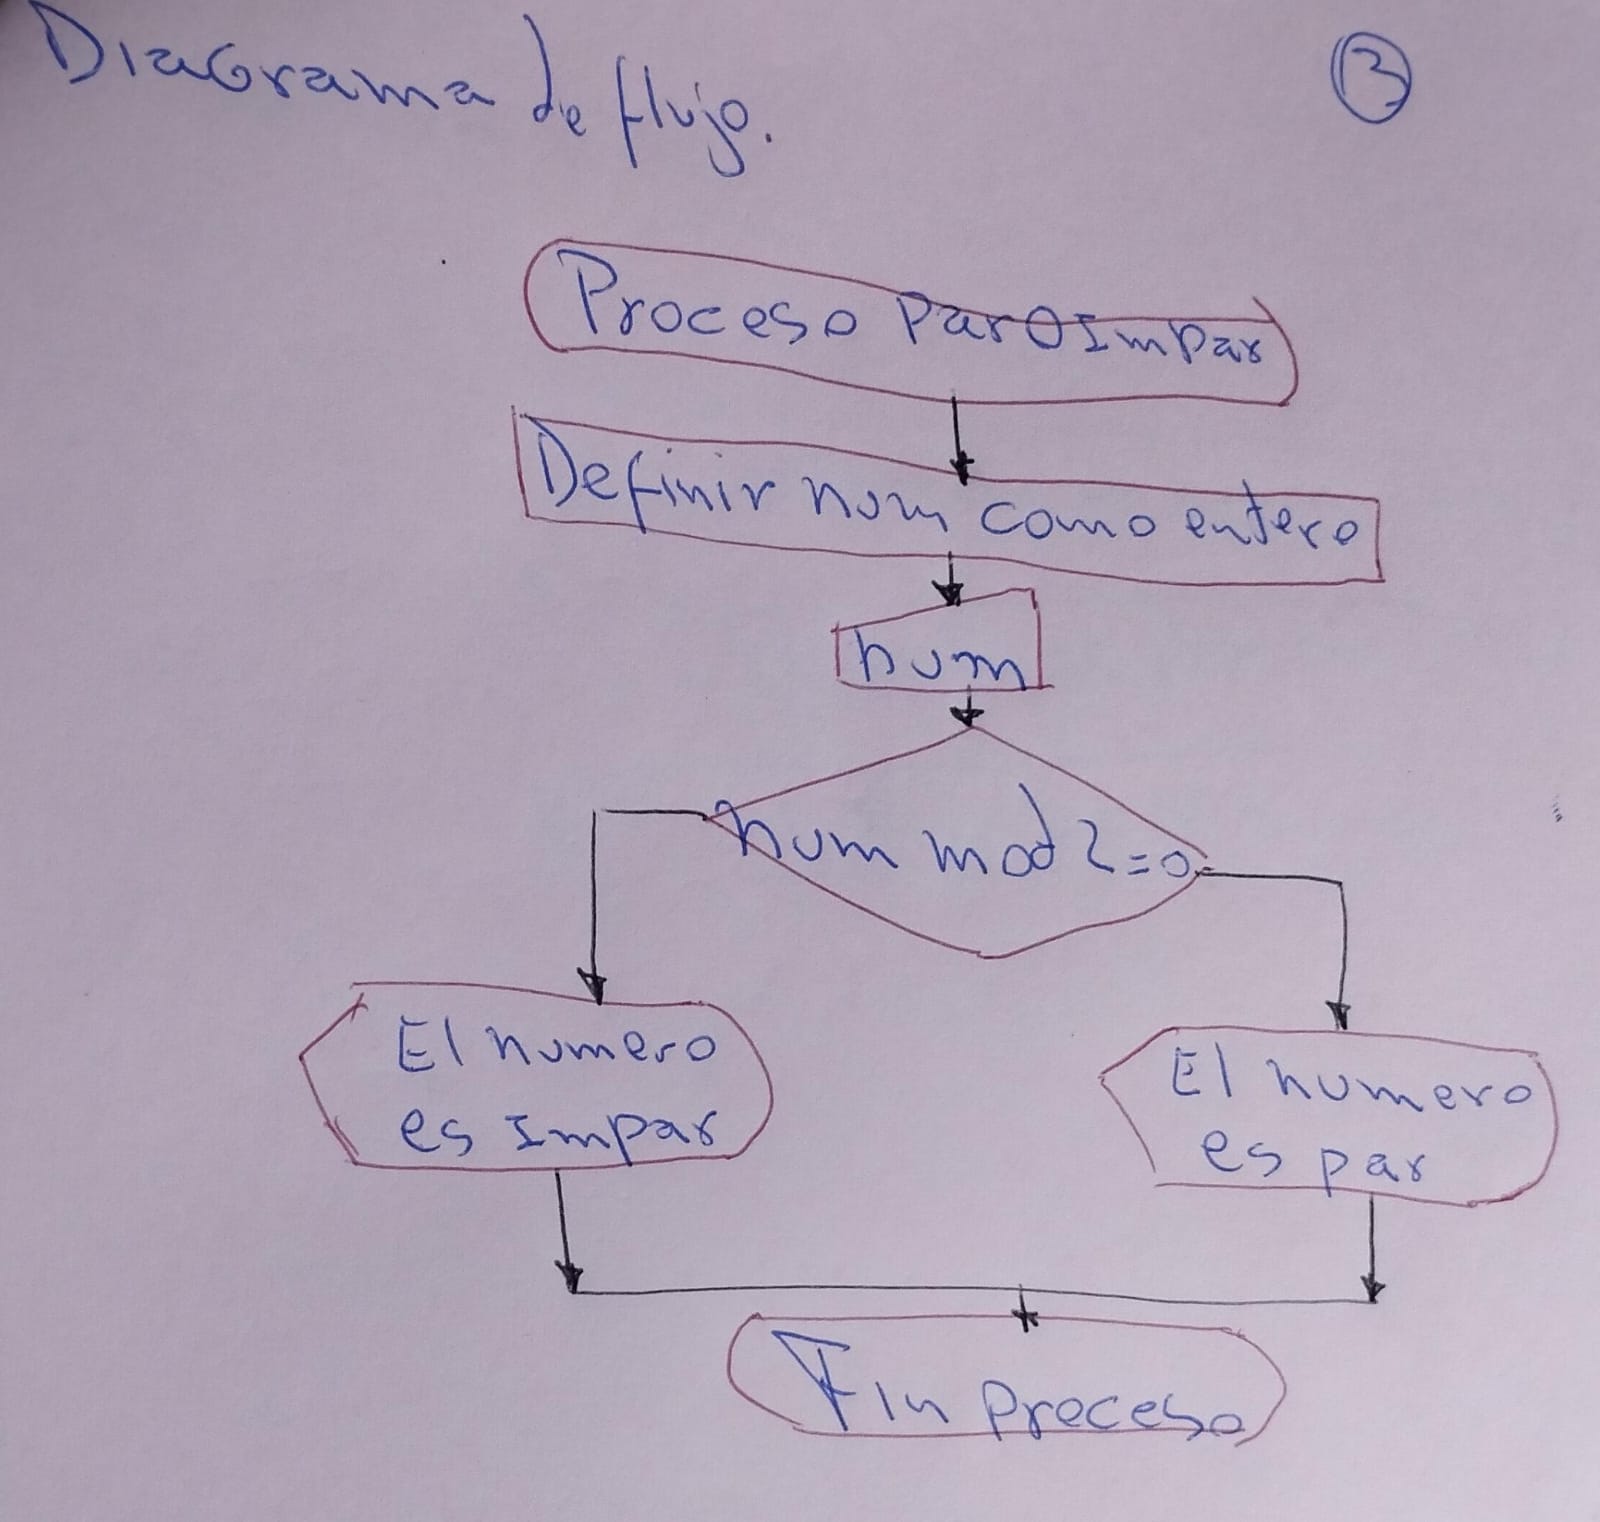 Diagrama de flujo.
3
Proceso ParOImpar
Definir num como entero
num
num mod 2=0
El numero
es Impar
El numero
es par
Fin proceso